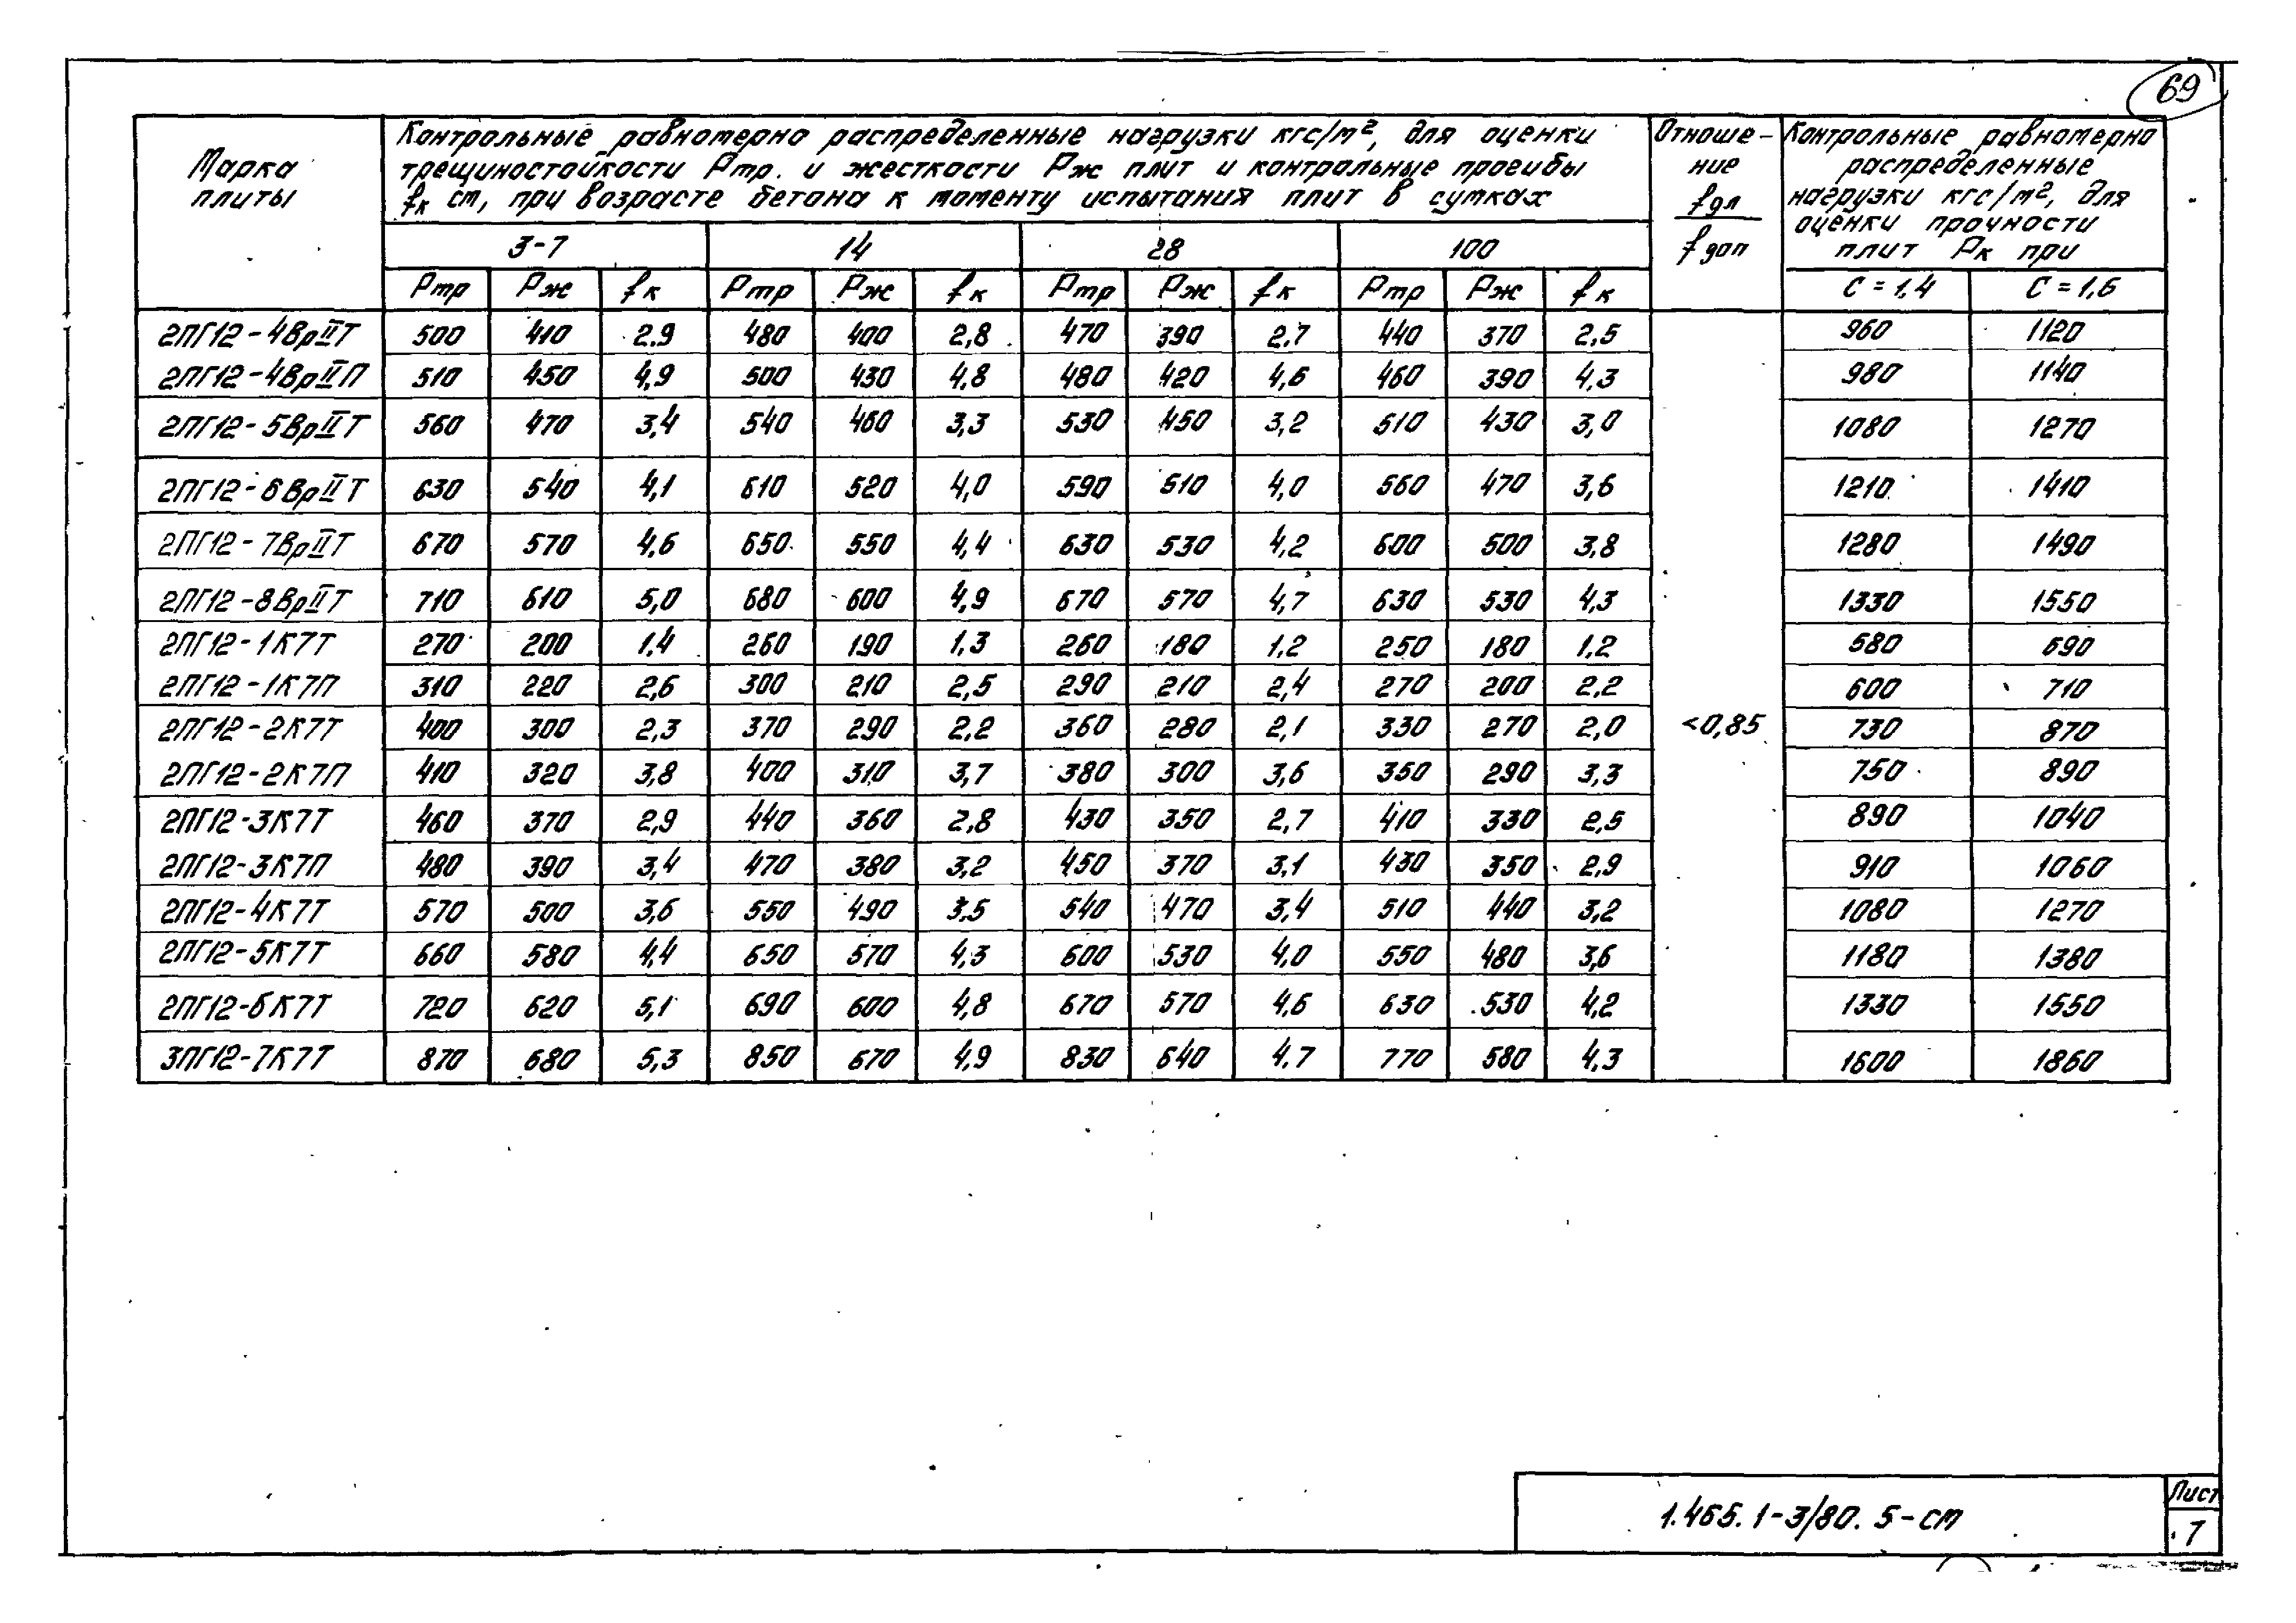 69
Марка плиты
Контрольные равномерно распределенные нагрузки кгс/м², для оценки
трещиностойкости Pтр. и жесткости Pж плит и контрольные прогибы
fк см, при возрасте бетона к моменту испытания плит в сутках
Отноше-
ние
fдл
fдоп
Контрольные равномерно
распределенные
нагрузки кгс/м², для
оценки прочности
плит Pк при
3-7 14 28 100
Pтр Pж fк Pтр Pж fк Pтр Pж fк Pтр Pж fк C=1,4 C=1,6
2ПГ12-4ВрIIТ 500 410 2.9 480 400 2,8 470 390 2,7 440 370 2,5 960 1120
2ПГ12-4ВрIIП 510 450 4,9 500 430 4,8 480 420 4,6 460 390 4,3 980 1140
2ПГ12-5ВрIIТ 560 470 3,4 540 460 3,3 530 450 3,2 510 430 3,0 1080 1270
2ПГ12-6ВрIIТ 630 540 4,1 610 520 4,0 590 510 4,0 560 470 3,6 1210 1410
2ПГ12-7ВрIIТ 670 570 4,6 650 550 4,4 630 530 4,2 600 500 3,8 1280 1490
2ПГ12-8ВрIIТ 710 610 5,0 680 600 4,9 670 570 4,7 630 530 4,3 1330 1550
2ПГ12-1К7Т 270 200 1,4 260 190 1,3 260 180 1,2 250 180 1,2 580 690
2ПГ12-1К7П 310 220 2,6 300 210 2,5 290 210 2,4 270 200 2,2 600 710
2ПГ12-2К7Т 400 300 2,3 370 290 2,2 360 280 2,1 330 270 2,0 <0,85 730 870
2ПГ12-2К7П 410 320 3,8 400 310 3,7 380 300 3,6 350 290 3,3 750 890
2ПГ12-3К7Т 460 370 2,9 440 360 2,8 430 350 2,7 410 330 2,5 890 1040
2ПГ12-3К7П 480 390 3,4 470 380 3,2 450 370 3,1 430 350 2,9 910 1060
2ПГ12-4К7Т 570 500 3,6 550 490 3,5 540 470 3,4 510 440 3,2 1080 1270
2ПГ12-5К7Т 660 580 4,4 650 570 4,3 600 530 4,0 550 480 3,6 1180 1380
2ПГ12-6К7Т 720 620 5,1 690 600 4,8 670 570 4,6 630 530 4,2 1330 1550
3ПГ12-7К7Т 870 680 5,3 850 670 4,9 830 640 4,7 770 580 4,3 1600 1860
1.465.1-3/80. 5-СМ
Лист
7